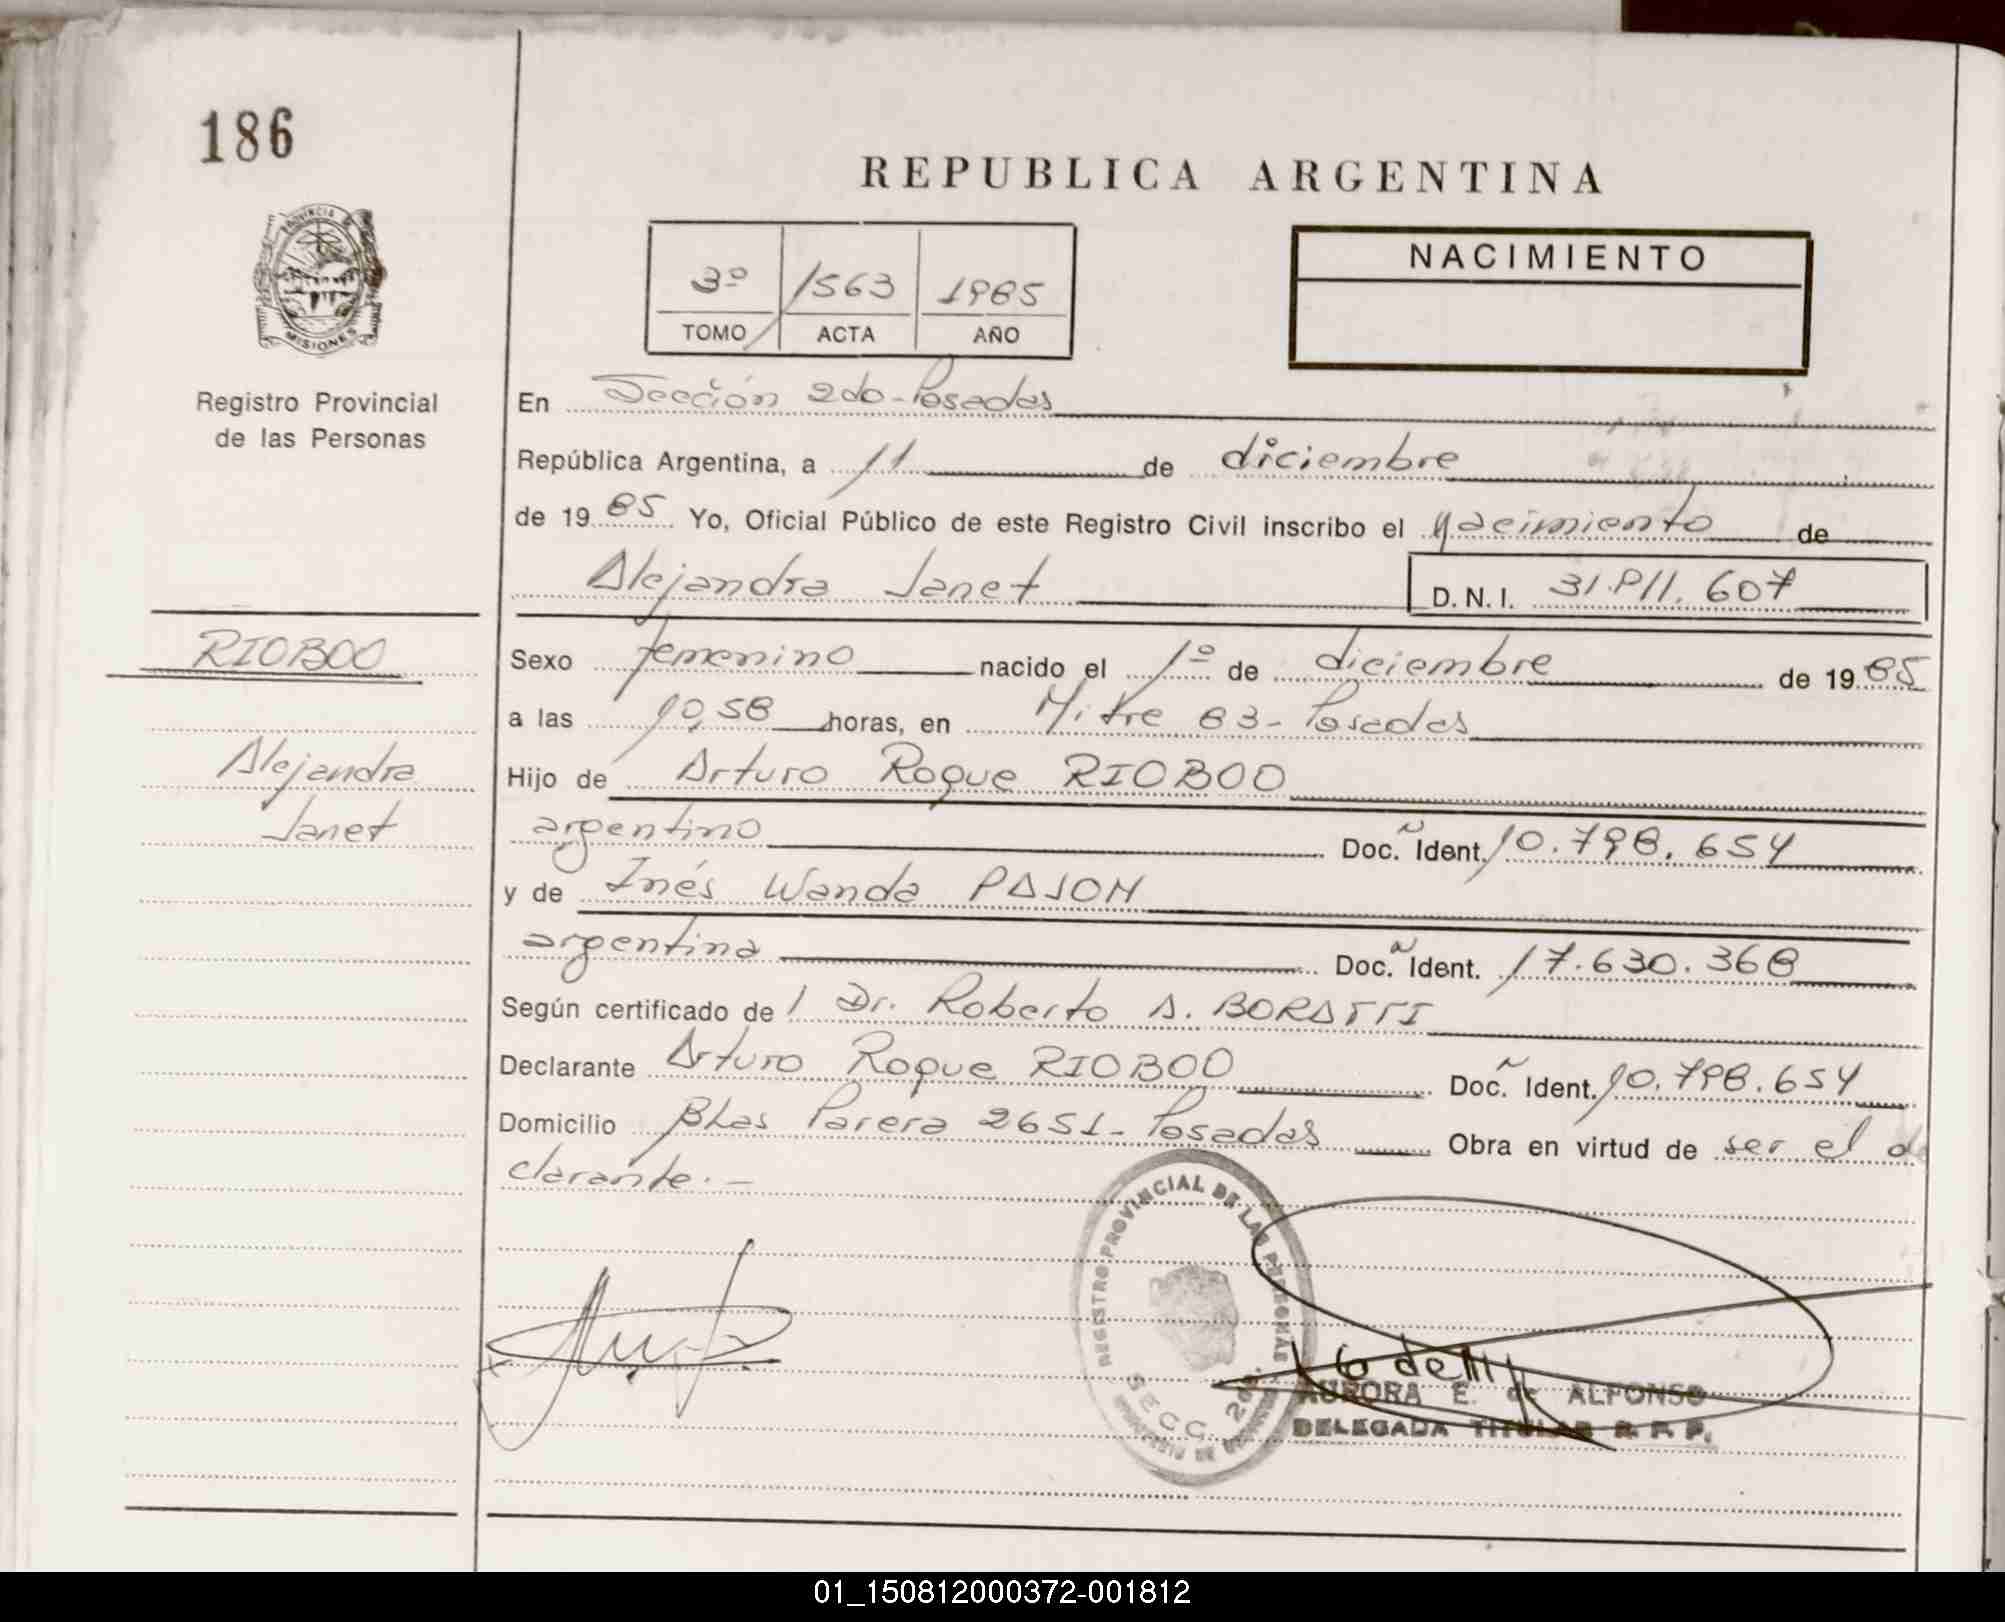 186
REPUBLICA ARGENTINA
PROVINCIA DE
MISIONES
Registro Provincial
de las Personas
3º 1563 1985
TOMO ACTA AÑO
NACIMIENTO
En Sección 2do-Posadas
República Argentina, a 11 de diciembre
de 1985 Yo, Oficial Público de este Registro Civil inscribo el nacimiento de
Alejandra Janet D.N.I. 31.911.607
RIOBOO
Sexo femenino nacido el 1º de diciembre de 1985
a las 10,58 horas, en Mitre 83- Posadas
Alejandra
Janet
Hijo de Arturo Roque RIOBOO
argentino Doc. Ident. 10.798.654
y de Inés Wanda PAJON
argentina Doc. Ident. 17.630.368
Según certificado de l Dr. Roberto A. BORATTI
Declarante Arturo Roque RIOBOO Doc. Ident. 10.798.654
Domicilio Blas Parera 2651- Posadas Obra en virtud de ser el de
clarante.-
REGISTRO PROVINCIAL DE LAS PERSONAS
SECC. 2da.
AURORA E. de ALFONSO
DELEGADA TITULAR R. P. P.
01_150812000372-001812